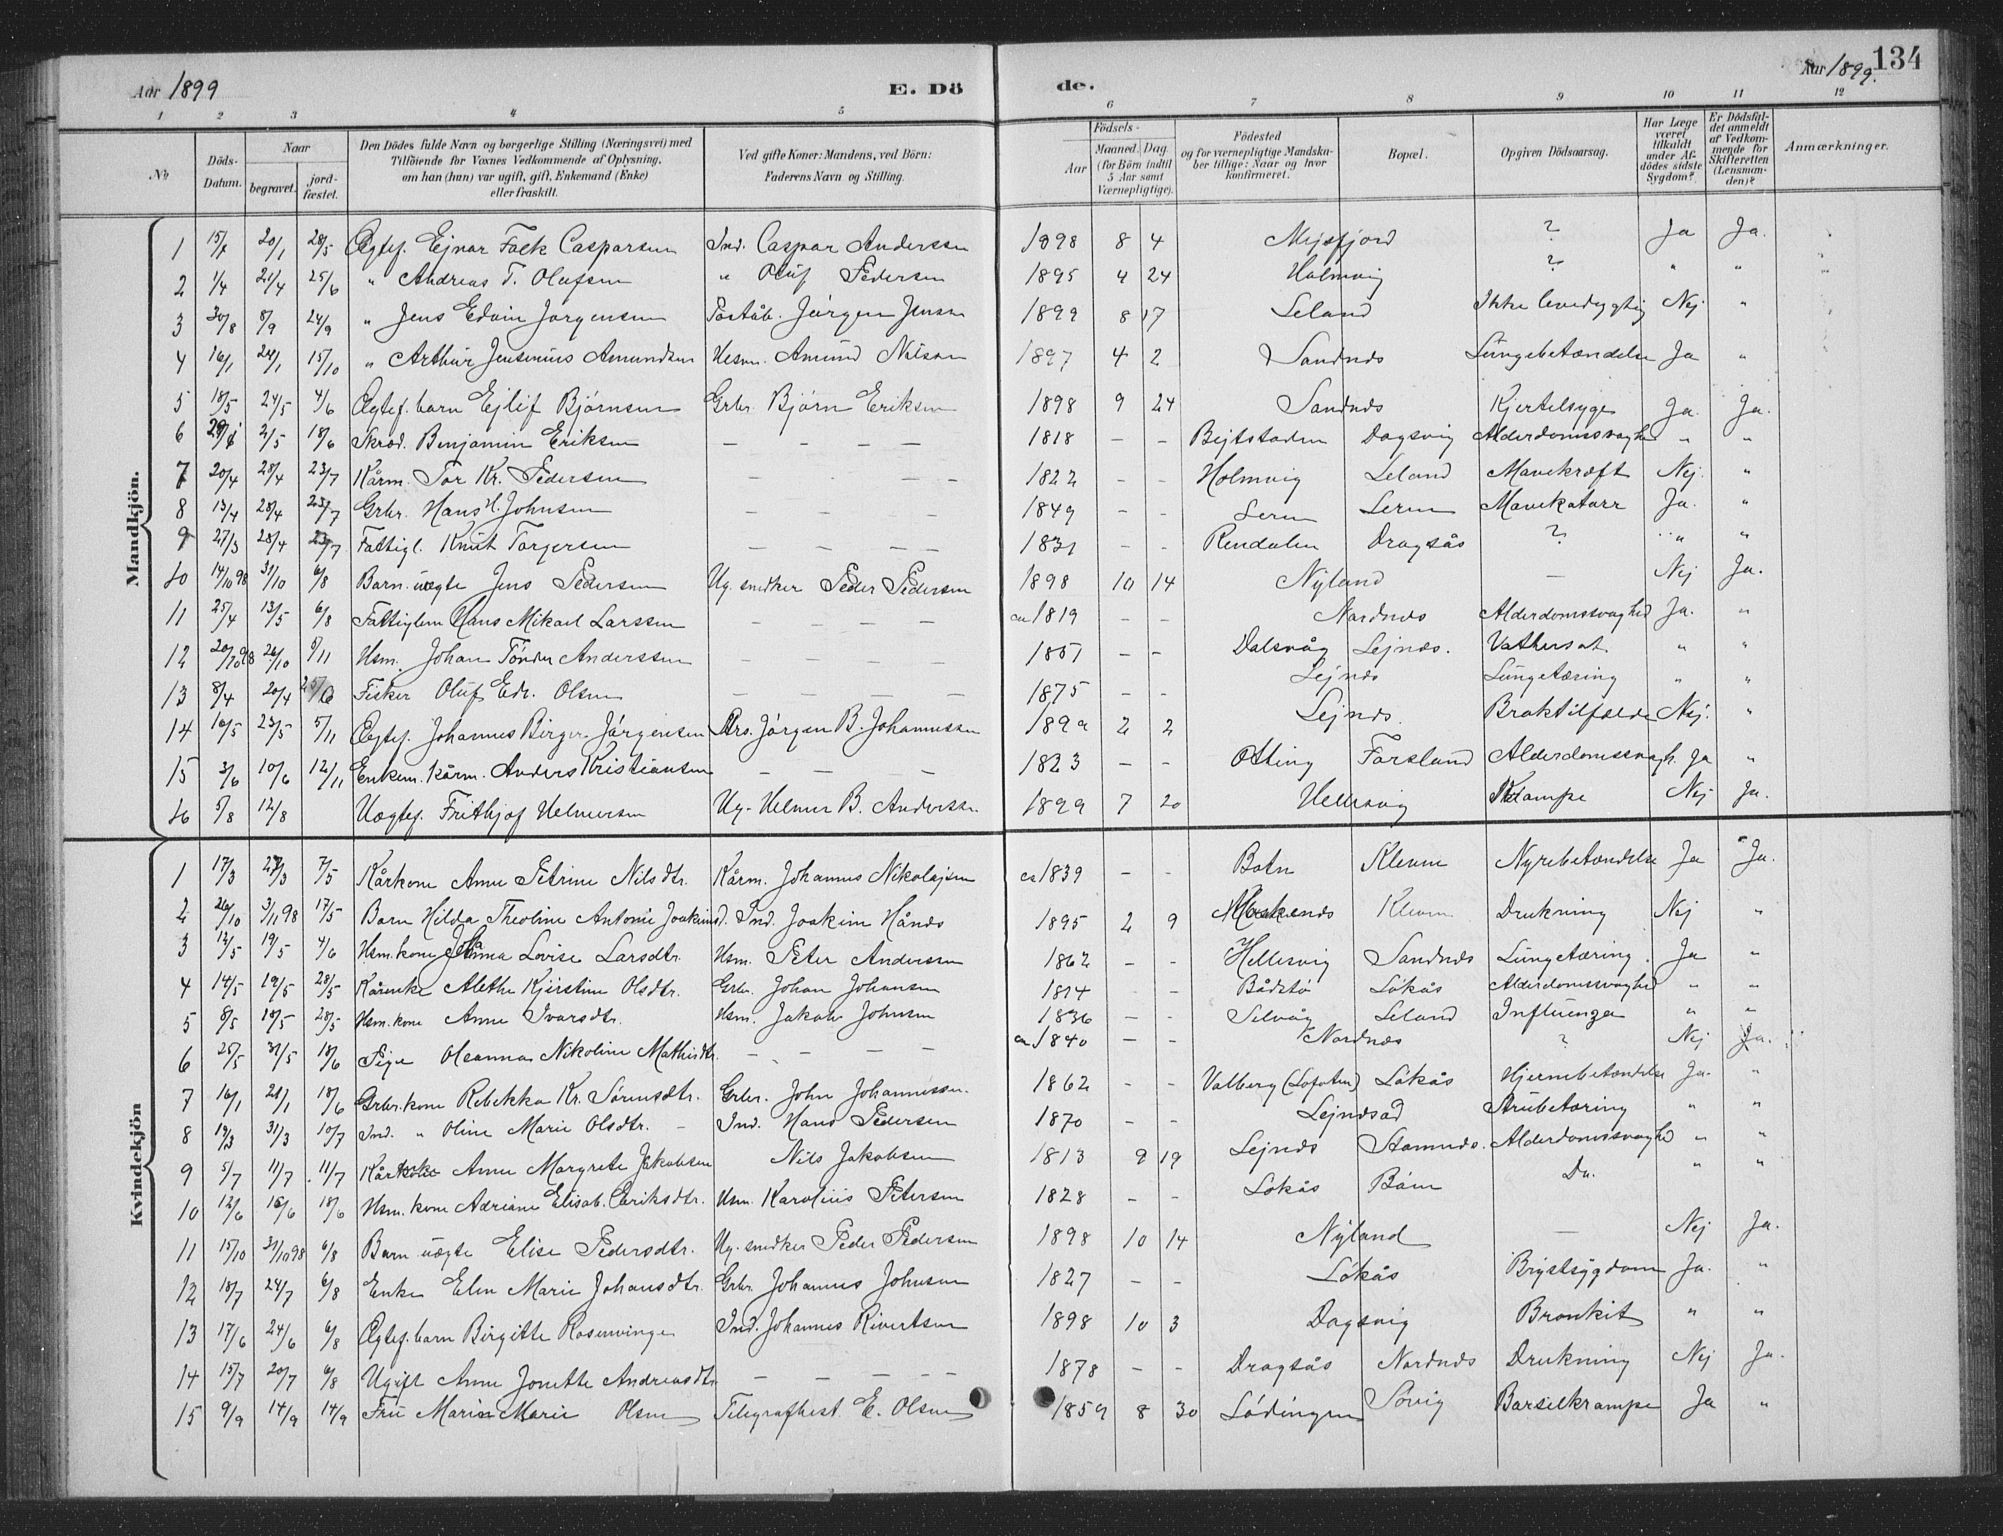 Aar 1899
E. Dö
de.
Aar 1899.
134
1 2 3 4 5 6 7 8 9 10 11 12
No
Döds-Datum.
Naar
begravet.
jord-fæstet.
Den Dödes fulde Navn og borgerlige Stilling (Næringsvei) med
Tilföiende for Voxnes Vedkommende af Oplysning,
om han (hun) var ugift, gift, Enkemand (Enke)
eller fraskilt.
Ved gifte Koner: Mandens, ved Börn:
Faderens Navn og Stilling.
Födsels-
Aar
Maaned. Dag
(for Börn indtil
5 Aar samt
Værnepligtige).
Födested
og for værnepligtige Mandska-
ber tillige: Naar og hvor
konfirmeret.
Bopæl.
Opgiven Dödsaarsag.
Har Læge
været
tilkaldt
under Af-
dödes sidste
Sygdom?
Er Dödsfal-
det anmeldt
af Vedkom-
mende for
Skifteretten
(Lensman-
den)?
Anmærkninger.
Mandkjön.
1 20/1 28/5 Ægtef. Ejnar Falk Casparsen Ind. Caspar Anderssen 1898 8 4 Mejsfjord ? Ja Ja.
2 1/4 21/4 25/6 " Andreas T. Olufsen " Oluf Pedersen 1895 4 24 Holmvig ? " "
3 30/8 8/9 24/9 " Jens Edvin Jørgensen Poståb. Jørgen Jensen 1899 8 17 Leland Ikke levedygtig Nej "
4 16/1 24/1 15/10 " Arthur Jensenius Amundsen Husm. Amund Nilsen 1897 4 2 Sandnes Lungebetændelse Ja "
5 18/5 24/5 4/6 Ægtef. barn Ejlif Bjørnsen Grbr. Bjørn Eriksen 1898 9 24 Sandnes Kjertelsyge Ja. Ja.
6 2/5 18/6 Benjamin Eriksen — — — — 1818 — — Bejtstaden Dagsvig Alderdomssvaghed " "
7 20/4 28/4 23/7 Kårm. Tor Kr. Pedersen — — — — 1822 — — Holmvig Leland Mavekræft Nej. "
8 13/4 28/4 23/7 Grbr. Hans H. Johnsen — — — — 1849 — — Leren Leren Mavekatarr Ja. "
9 27/3 28/4 23/7 Fattigl. Knut Torgersen — — — — 1831 — — Rendalen Dragsås ? " "
10 14/10 98 31/10 6/8 Barn uægte Jens Pedersen Ug. snedker Peder Pedersen 1898 10 14 Nyland — Nej Ja.
11 25/4 13/5 6/8 Fattiglem Hans Mikael Larssen — — — — ca 1819 — — Nordnes Alderdomssvaghed Ja. "
12 20/10 98 26/10 5/11 Hsm. Johan Tönder Anderssen — — — — 1851 — — Dalsvåg Lejnes. Vathersot " "
13 8/4 20/4 25/6 Fisker Oluf Edv. Olsen — — — — 1875 — — Lejnes Lungetæring " "
14 16/5 23/5 5/11 Ægtef. Johannes Birger Jørgensen Jørgen B. Johannessen 1899 2 2 Lejnes. Braktilfælde Nej. "
15 3/6 10/6 12/11 Enkem. kårm. Anders Kristiansen — — — 1823 — — Otting Forsland Alderdomssvagh. Ja "
16 5/8 12/8 Uægtef. Frithjof Helmersen Ug. Helmer B. Anderssen 1899 7 20 Hellesvig Krampe Nej Ja.
Kvindekjön
1 17/3 27/3 7/5 Kårkone Anne Petrine Nilsdtr. Kårm. Johannes Nikolajsen ca 1839 — — Botn Kleven Nyrebetændelse Ja Ja.
2 26/10 3/11 98 17/5 Barn Hilda Theoline Antonie Joakimsd. Ind. Joakim Hånes 1895 2 9 Kleven Drukning Nej "
3 12/5 19/5 4/6 Hsm. kone Johanna Lovise Larsdtr. Hsm. Peter Anderssen 1862 — — Hellesvig Sandnes Lungetæring. Ja "
4 14/5 19/5 28/5 Kårenke Alethe Kjerstine Olsdtr. Grbr. Johan Johansen 1814 — — Bådstø Løkås Alderdomssvaghed " "
5 8/5 19/5 28/5 Hsm. kone Anne Ivarsdtr. Hsm. Jakob Johnsen 1836 — — Selvåg Leland Influenza " "
6 25/5 31/5 18/6 Pige Oleanna Nikoline Mathisdtr. — — — — ca 1840 — — Nordnes ? Nej Ja.
7 16/1 21/1 18/6 Grbr. kone Rebekka Kr. Sørensdtr. Grbr. John Johannessen. 1862 — — Valberg (Lofoten) Løkås Hjernebetændelse Ja. "
8 19/3 31/3 10/7 Ind. " Oline Marie Olsdtr. — Ind. Hans Pedersen 1870 — — Lejnesød Strubetæring " "
9 5/7 11/7 11/7 Anne Margrete Jakobsen Nils Jakobsen 1813 9 19 Lejnes Stamnes. Alderdomssvaghed " "
10 12/6 16/6 18/6 Hsm. kone Adriane Elisab. Eriksdtr. Hsm. Karolius Petersen 1828 — — Løkås Båen Do. " "
11 15/10 31/10 98 6/8 Barn uægte Elise Pedersdtr. Ug. snedker Peder Pedersen 1898 10 14 Nyland — Nej Ja.
12 18/7 24/7 6/8 Enke Elen Marie Johansdtr. Grbr. Johannes Johnsen 1827 — — Løkås Brystsygdom Ja. "
13 17/6 24/6 6/8 Ægtef. barn Birgitte Rosenvinge Ind. Johannes Rivertsen 1898 10 3 Dagsvig Bronkit " "
14 15/7 20/7 6/8 Ugift Anne Jonette Andreasdtr. — — — — — 1878 — — Dragsås Nordnes Drukning Nej Ja.
15 9/9 14/9 14/9 Fru Marie Olsen Telegrafbest. E. Olsen 1859 8 30 Lødingen Søvig Barselkrampe Ja "